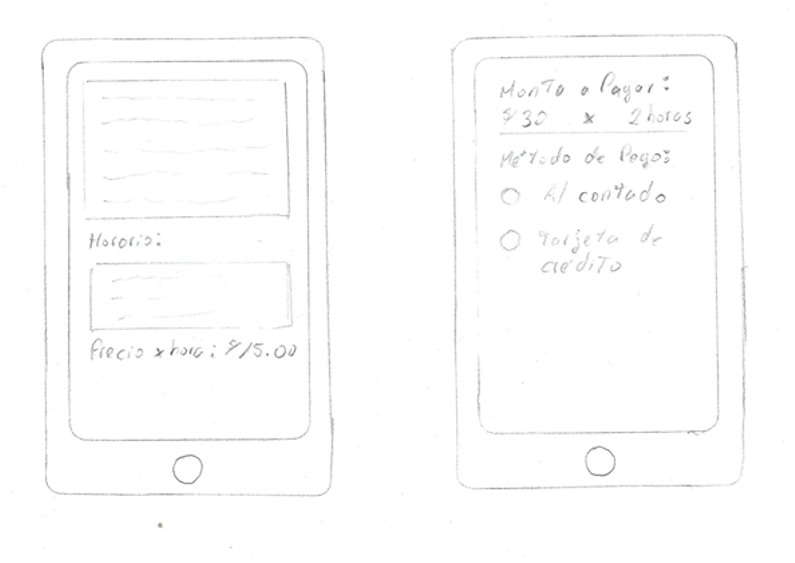 Horario:
Precio x hora: S/15.00
Monto a Pagar:
S/30 x 2 horas
Método de Pago:
Al contado
Tarjeta de
crédito